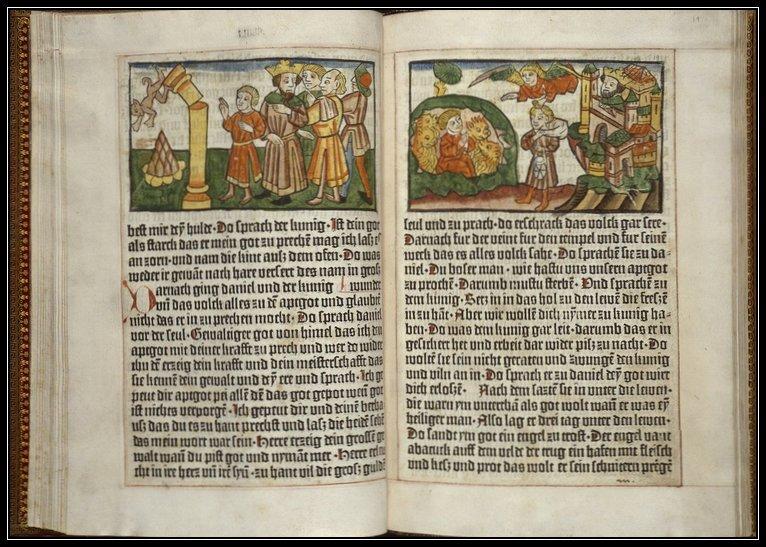 best mir dein hulde· Do sprach der kunig· Ist dein got
als starck das er mein got zu prechē mag ich laß eʒ
an zorn· und nam die kint auß dem ofen· Do was
weder ir gewāt nach hare versert des nam in groß
Darnach ging daniel und der kunig wunder
vnd das volck alles zu dē aptgot und glaubtē
nicht das er in zu prechen mocht· Do sprach daniel
vor der seul· Gewaltiger got von himel das ich den
aptgot mit deiner krafft zu prech und wer do wider
ihn dē erzeig dein krafft und dein meisterschafft das
sie kennē dein gewalt und dein ere und sprach· Ich ge
peut dir aptgot pei allē dē das got gepot wen got
ist nichts verporgē· Ich gepeut dir und deinē
uß das du es zu hant prechst und laß die heidē sehē
das mein wort war sein· Herre erzeig dein grossē ge
walt wann du pist got und nymāt mer· Herre
in ire herʒ vn̄ ire syn· zu hant vil die groß guldē
seul und zu prach· do erschrack das volck gar sere·
Darnach fur der veint fur den tempel und fur seinē
werck das es alles volck sahe· Do sprachē sie zu da-
niel· Du boser man· wie hastu uns unsern aptgot
zu prochē· Darumb mustu sterbē· Und sprachē zu
dem kunig· Setz in in das hol zu den lewē die fressē
in zu hāt· Aber wir wollē dich nymer zu kunig ha-
ben· Do was dem kunig gar leit· darumb das er in
gesicher het und erbeit dar wider piß zu nacht· Do
woltē sie sein nicht geraten und zwungē den kunig
und viln an in· Do sprach er zu daniel dein got wirt
dich erlosē· Nach dem saztē sie in unter die lewen·
die warn ym untertā als got wolt wan̄ er was eyn
heiliger man· Also lag er drei tag unter den lewen·
Do sandt ym got ein engel zu trost· Der engel vant
abacuck auff dem velde der trug ein hafen mit fleisch
und keß und prot das wolt er sein schnitern prēgē